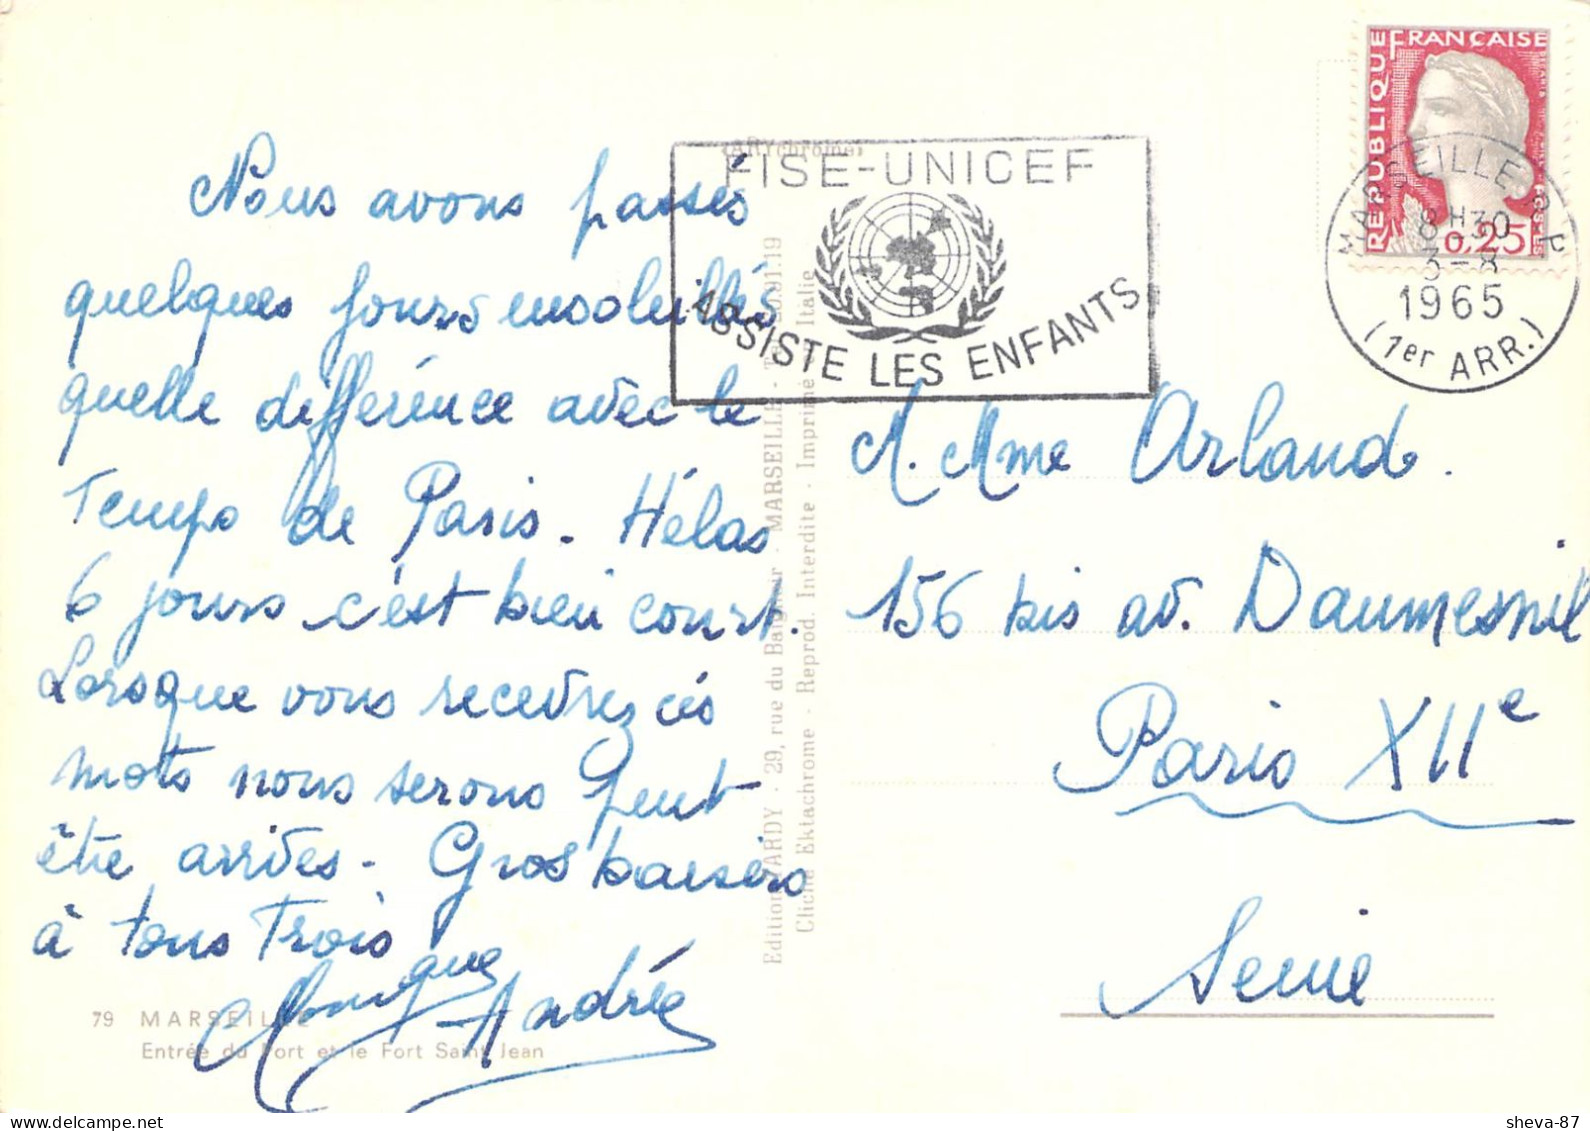 Nous avons passés
quelques jours ensoleillés
quelle différence avec le
Temps de Paris. Hélas
6 jours c'est bien court.
Lorsque vous recevrez ces
mots nous serons peut
être arrivés. Gros baisers
à tous Trois
Andrée
79 MARSEILLE
Entrée du Port et le Fort Saint Jean
(ARYchrome)
FISE-UNICEF
ASSISTE LES ENFANTS
Edition YARDY - 29, rue du Baignoir - MARSEILLE -
Cliché Ektachrome - Reprod. Interdite - Imprimé en Italie
REPUBLIQUE FRANÇAISE
0,25
MARSEILLE R.P.
8H30
3-8
1965
(1er ARR.)
M. Mme Arland.
156 bis av. Daumesnil
Paris XIIe
Seine
sheva-87